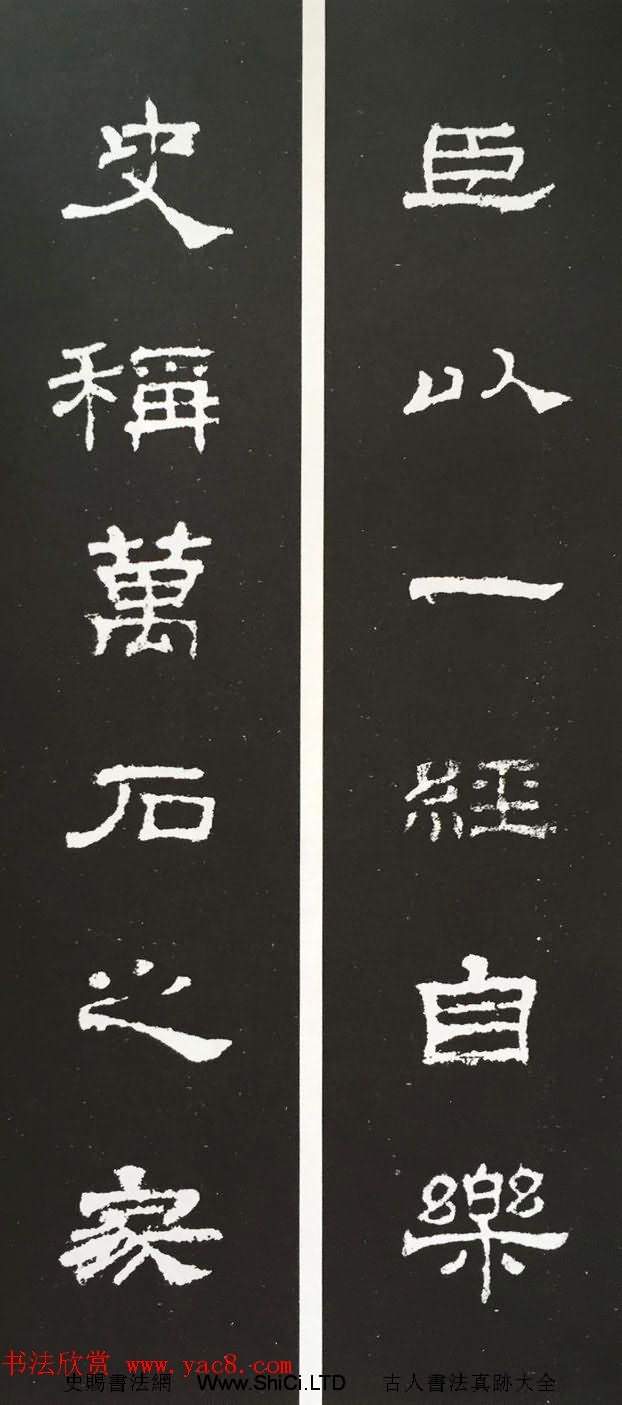 臣以一經自樂
史稱萬石之家
书法欣赏 www.yac8.com
史賜書法網 Www.ShiCi.LTD 古人書法真跡大全